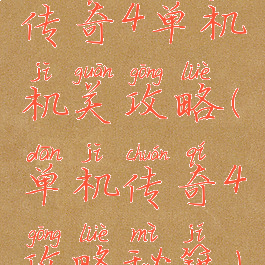 传奇4单机
jī guān gōng lüè
机关攻略(
dān jī chuán qí
单机传奇4
gōng lüè mì jí
攻略秘籍)